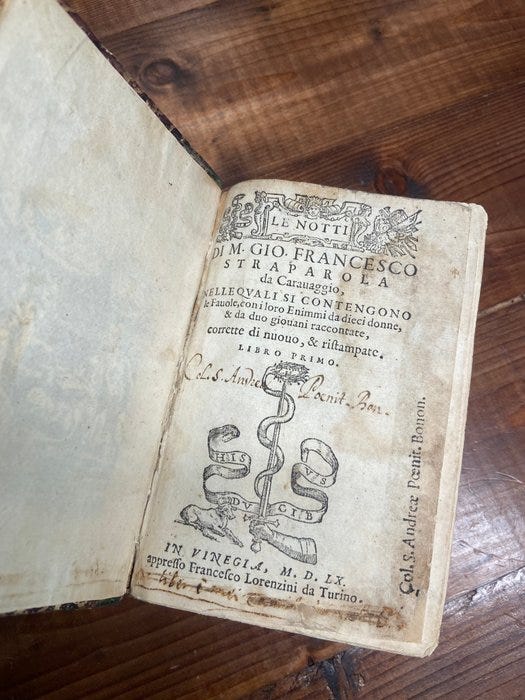 LE NOTTI
DI M. GIO. FRANCESCO
STRAPAROLA
da Carauaggio,
NELLEQVALI SI CONTENGONO
le Fauole, con i loro Enimmi da dieci donne,
& da duo giouani raccontate,
corrette di nuouo, & ristampate.
LIBRO PRIMO.
Col. S. Andreæ Pœnit. Bon.
HIS
DVCIB
VS
IN VINEGIA, M. D. LX.
appresso Francesco Lorenzini da Turino.
Col. S. Andreæ Pœnit. Bonon.